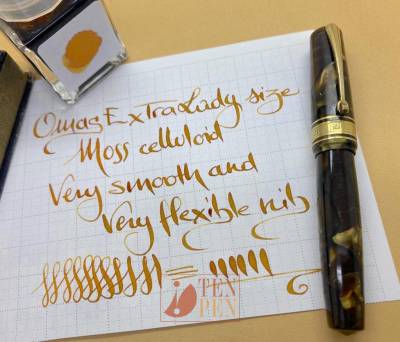 Omas Extra Lady size
Moss celluloid
Very smooth and
Very flexible nib
TEN
PEN